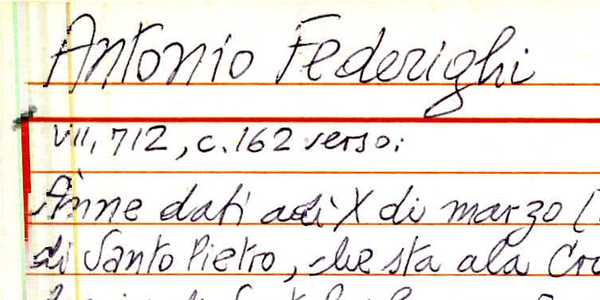 Antonio Federighi
VII, 712, c. 162 verso:
Ànne dati adì X di marzo [
di Santo Pietro, che sta ala